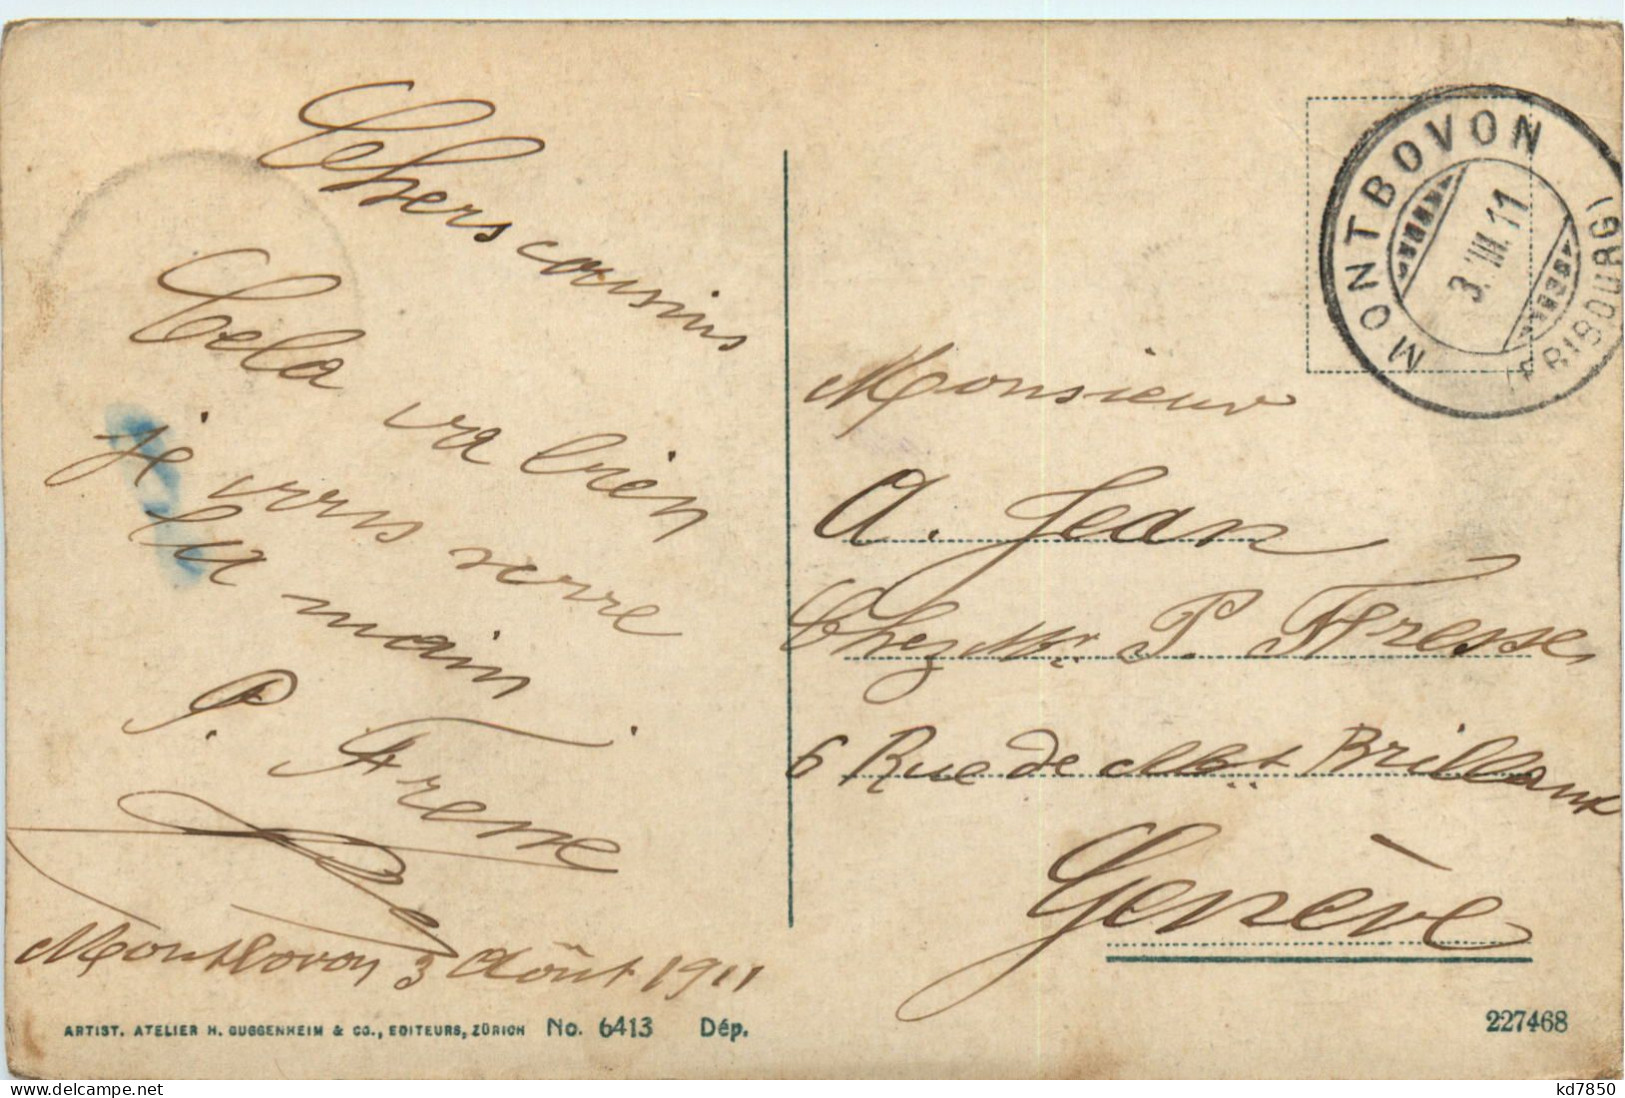 Chers cousins
Cela va bien
je vous serre
la main
P. Fresse
Montbovon 3 Août 1911
ARTIST. ATELIER H. GUGGENHEIM & CO., EDITEURS, ZÜRICH No. 6413 Dép.
MONTBOVON
(FRIBOURG)
3.VIII.11
Monsieur
A. Jean
Chez Mr. P. Fresse,
6 Rue de Mt Brillant
Genève
227468
www.delcampe.net
kd7850